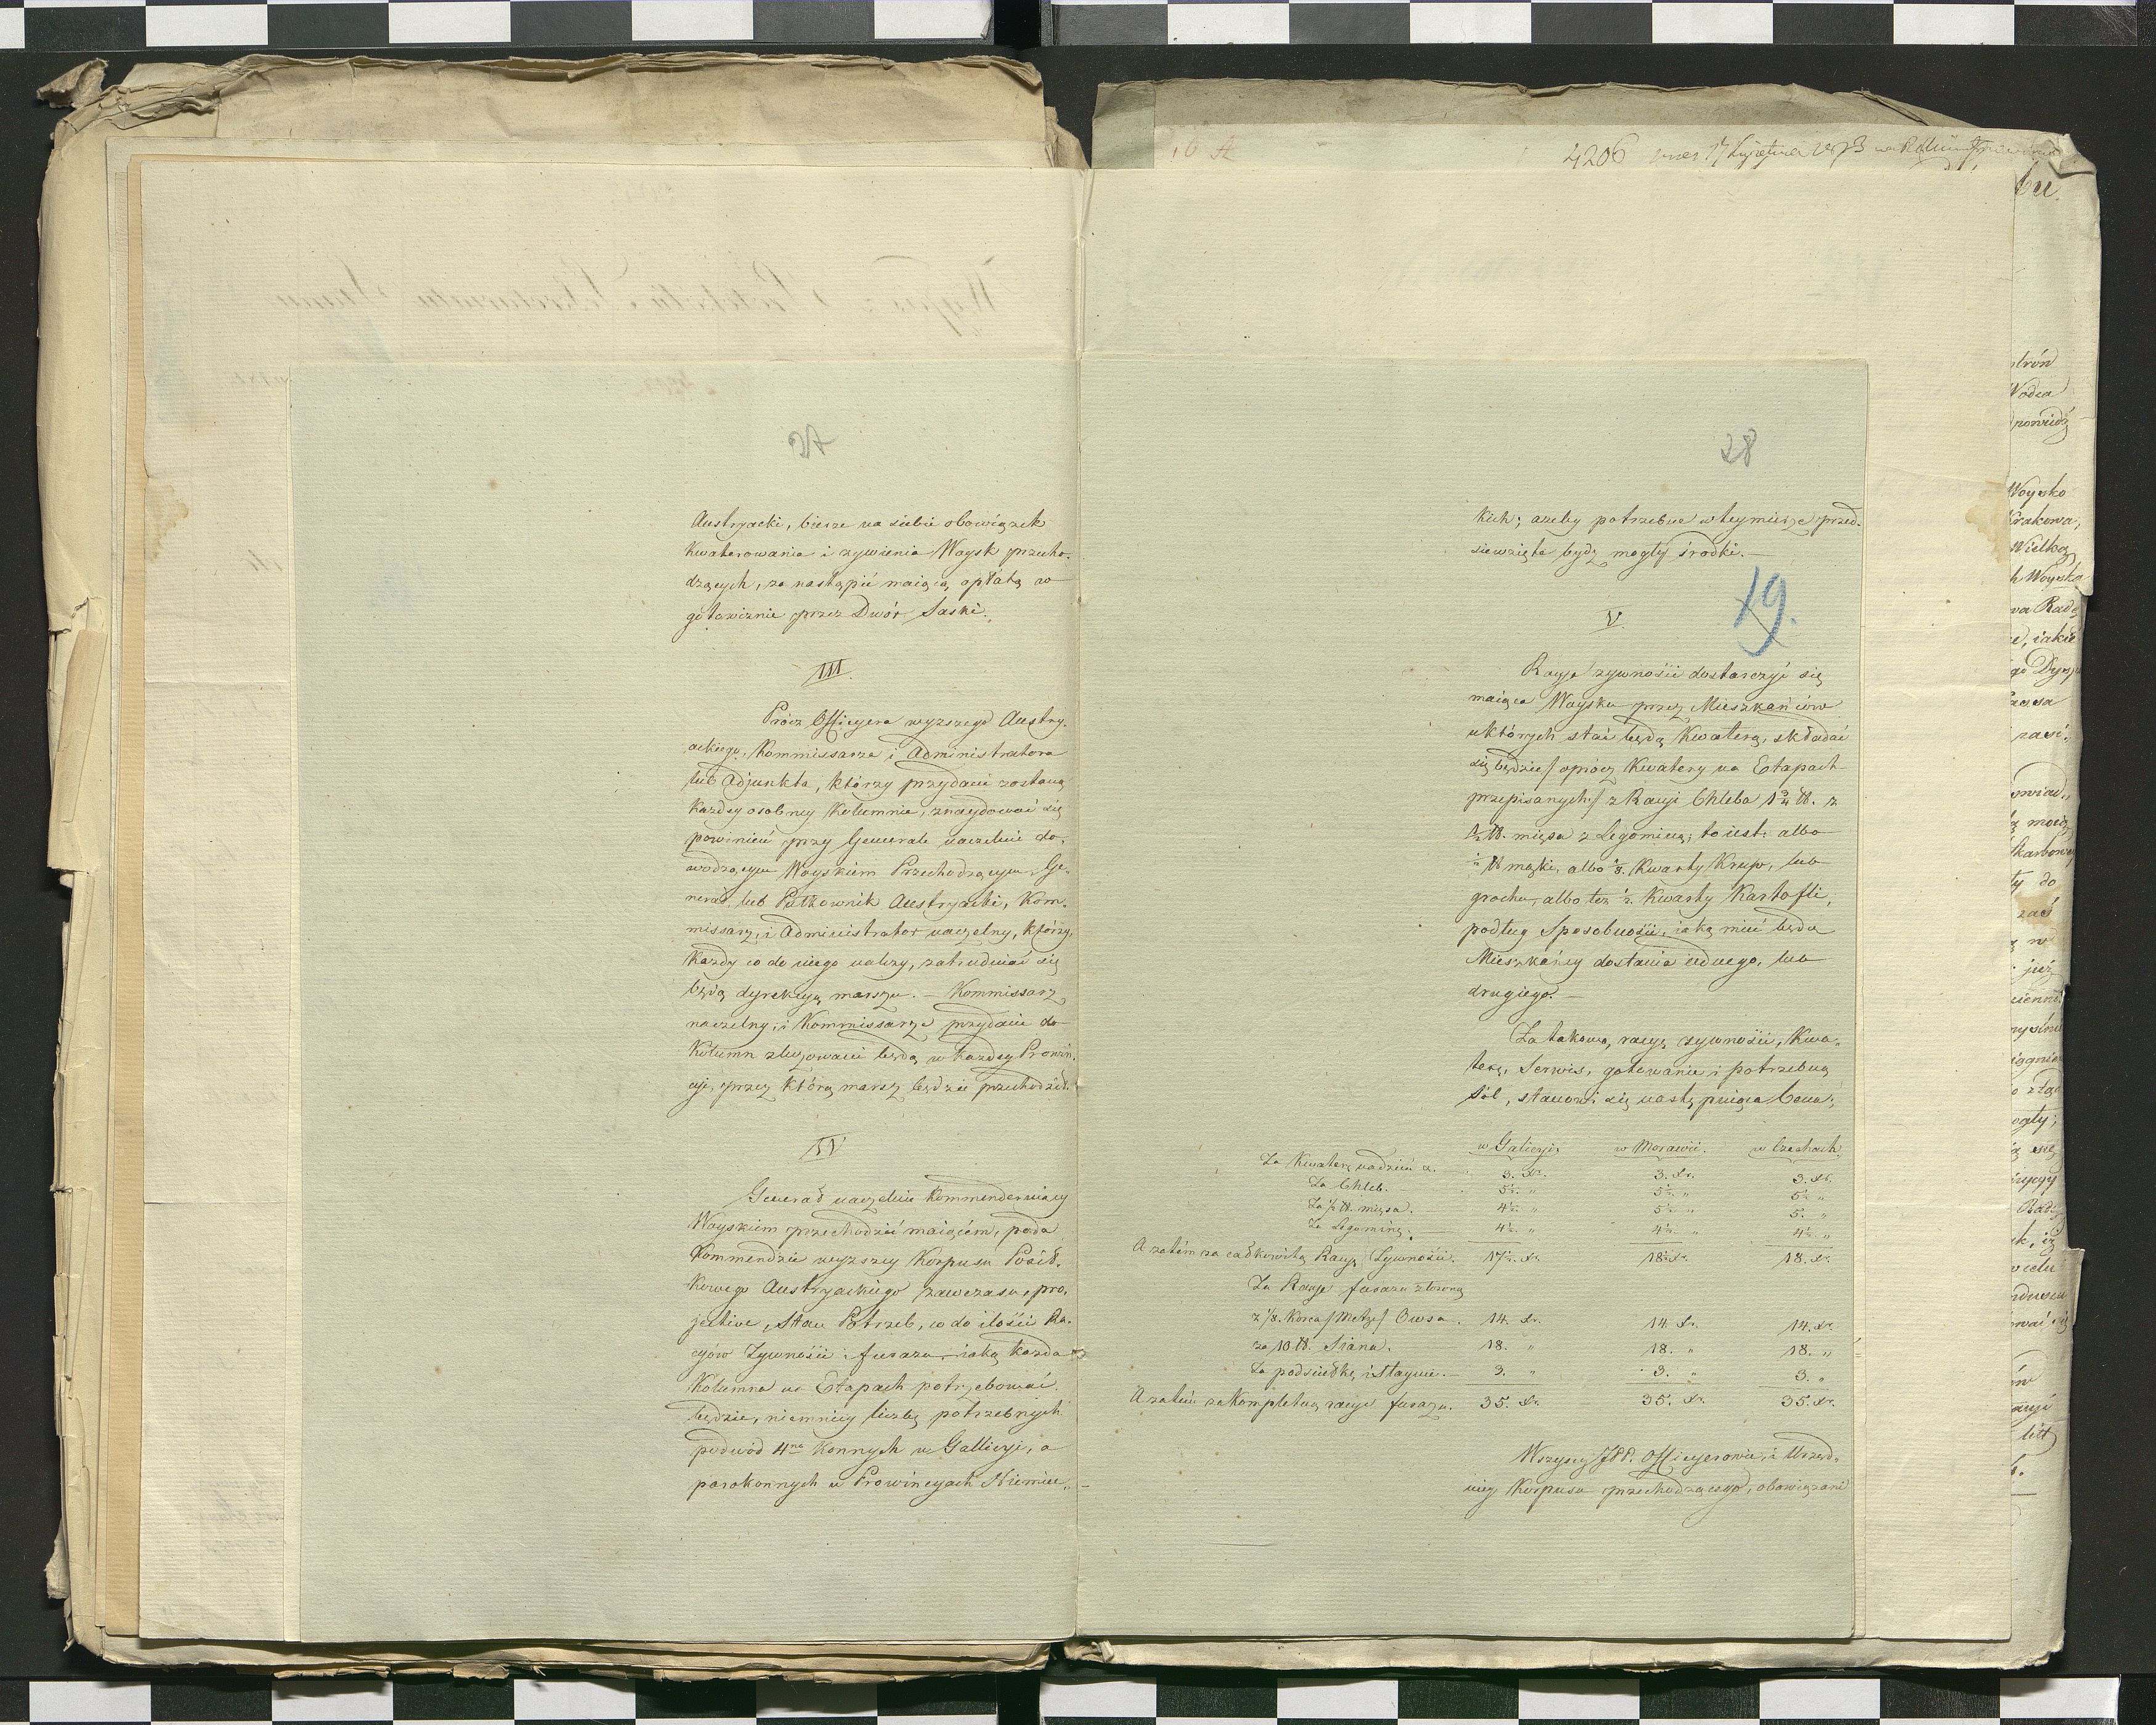 27
Austryacki, bierze na siebie obowiązek
Kwaterowania i zywienia Woysk przecho-
dzących, za nastąpić maiącą opłatą w
gotowiznie przez Dwór Saski.
III.
Prócz Officyera wyzszego Austry-
ackiego, Kommissarza, i Administratora
lub Adjunkta, którzy przydani zostaną
każdey osobney Kolumnie, znaydować się
powinien przy Generale naczelnie do-
wodzącym Woyskiem Przechodzącym, Ge-
nerał, lub Pułkownik Austryacki, Kom-
missarz, i Administrator naczelny, którzy,
Każdy co do niego należy, zatrudniać się
będą dyrekcyą marszu. — Kommissarz
naczelny, i Kommissarze przydani do
Kolumn zluzowani będą w każdey Prowin-
cyi, przez którą marsz będzie przechodził.
IV
Generał naczelnie kommenderuiący
Woyskiem przechodzić maiącém, poda
Kommendzie wyzszey Korpusu Posił-
kowego Austryackiego zawczasu, pro-
jective, Stan Potrzeb, co do ilości Ra-
cyów Zywności i furazu, iaką każda
Kolumna na Etapach potrzebować
będzie, niemniey liczbę potrzebnych
podwód 4ro konnych w Galliicyi, a
parokonnych w Prowincyach Niemiec-
4206
28
kich; azeby potrzebne w teymierze przed-
siewzięte bydź mogły środki. —
19.
V.
Racya zywności dostarczyć się
maiąca Woysku przez Mieszkańców
u których stać będą Kwaterą, składać
się będzie/ oprócz Kwatery na Etapach
przepisanych/ z Racyi Chleba 1 3/4 ℔. z
1/2 ℔. mięsa z Legominą; to iest: albo
1/2 ℔ mąki, albo 1/8. Kwarty Krup, lub
grochu, albo też 1/2. Kwarty Kartofli,
podług Sposobności, iaką mieć będą
Mieszkańcy dostania iednego, lub
drugiego. —
Za takową racyę zywności, Kwa-
terę, Serwis, gotowanie i potrzebną
sól, stanowi się następuiąca Cena:
w Galicyi. w Morawii. w Czechach.
Za Kwaterę na dzień a. 3. Xr. 3. Xr. 3. Xr.
Za Chleb. 5 1/2. " 5 1/2. " 5 1/2 "
Za 1/2 ℔. mięsa. 4 1/2. " 5 1/2. " 5. "
Za Legominę. 4 1/2. " 4 1/2. " 4 1/2 "
A zatém za całkowitą Racyę Zywności. 17 1/2. Xr. 18 1/2. Xr. 18. Xr.
Za Racyę furazu złozoną
z 1/8. Korca/Metze/ Owsa. 14. Xr. 14. Xr. 14. Xr.
za 10 ℔. Siana. 18. " 18. " 18. "
Za podściółkę i Staynie. 3. " 3. " 3. "
A zatém za kompletną racyę furazu. 35. Xr. 35. Xr. 35. Xr.
Wszyscy JPP. Officyerowie, i Urzęd-
nicy Korpusu przechodzącego, obowiązani